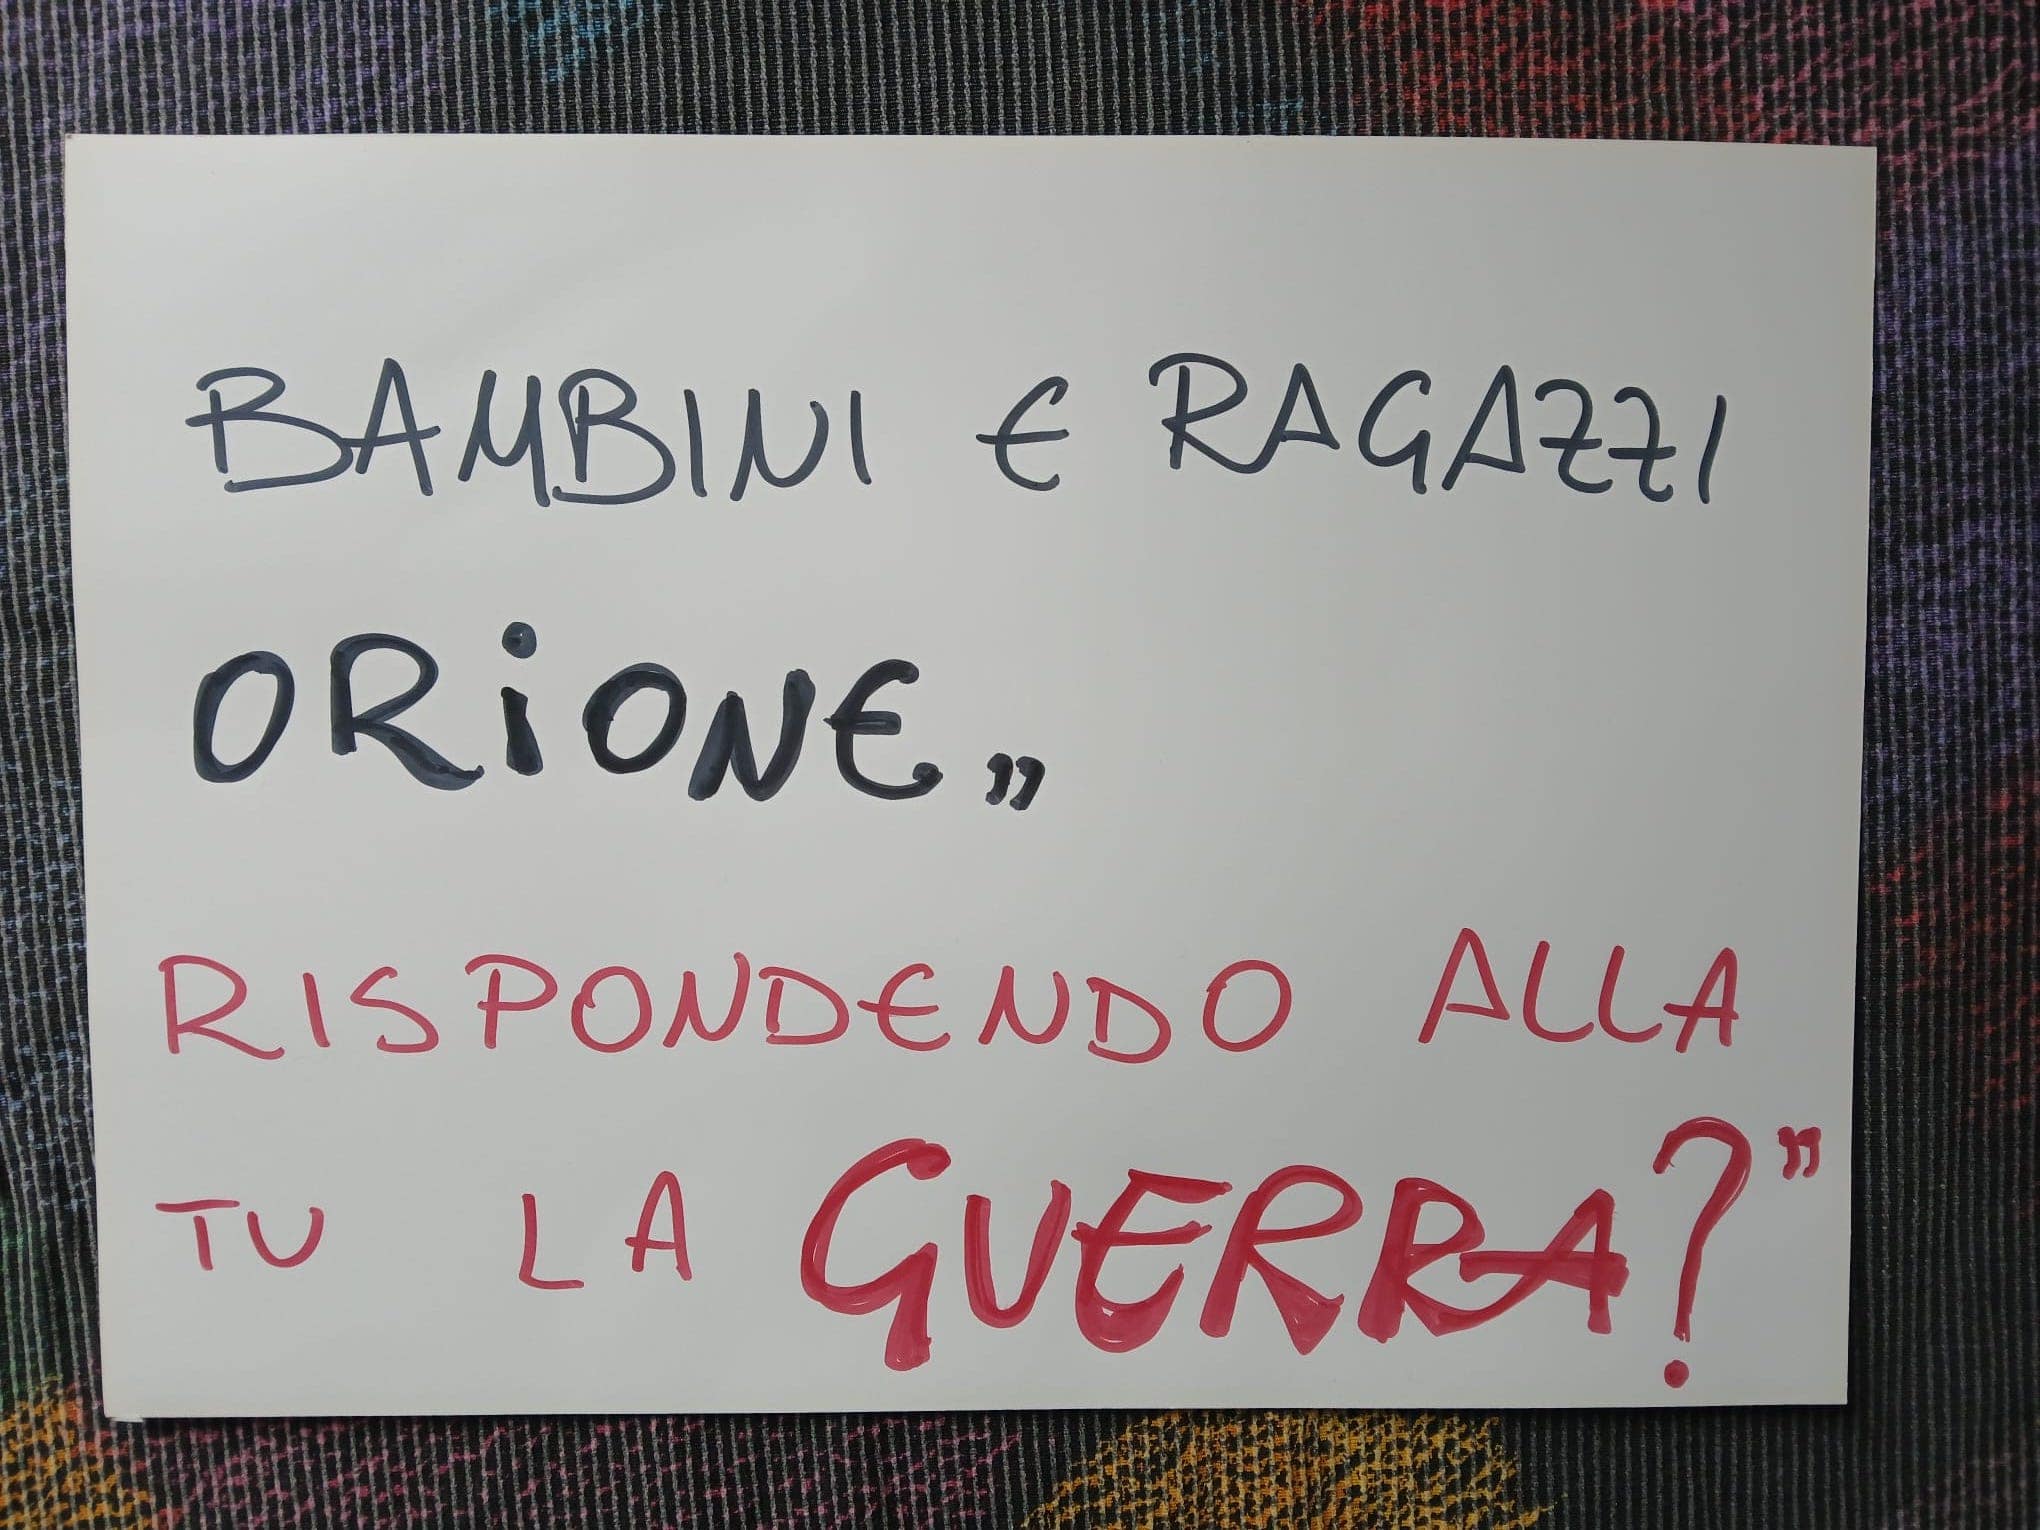 BAMBINI E RAGAZZI
ORIONE „
RISPONDENDO ALLA
TU LA GUERRA?”